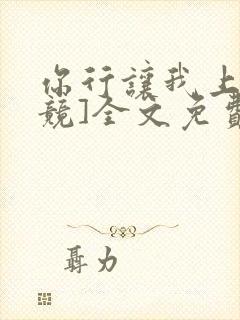 你行讓我上
競]全文免費
聶力